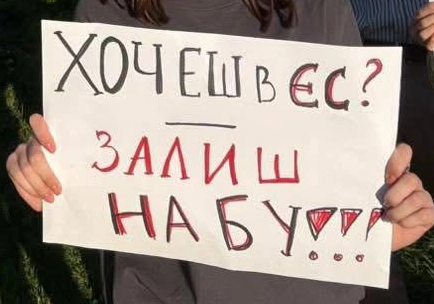 ХОЧЕШ В ЄС?
—
ЗАЛИШ
НАБУ!!!